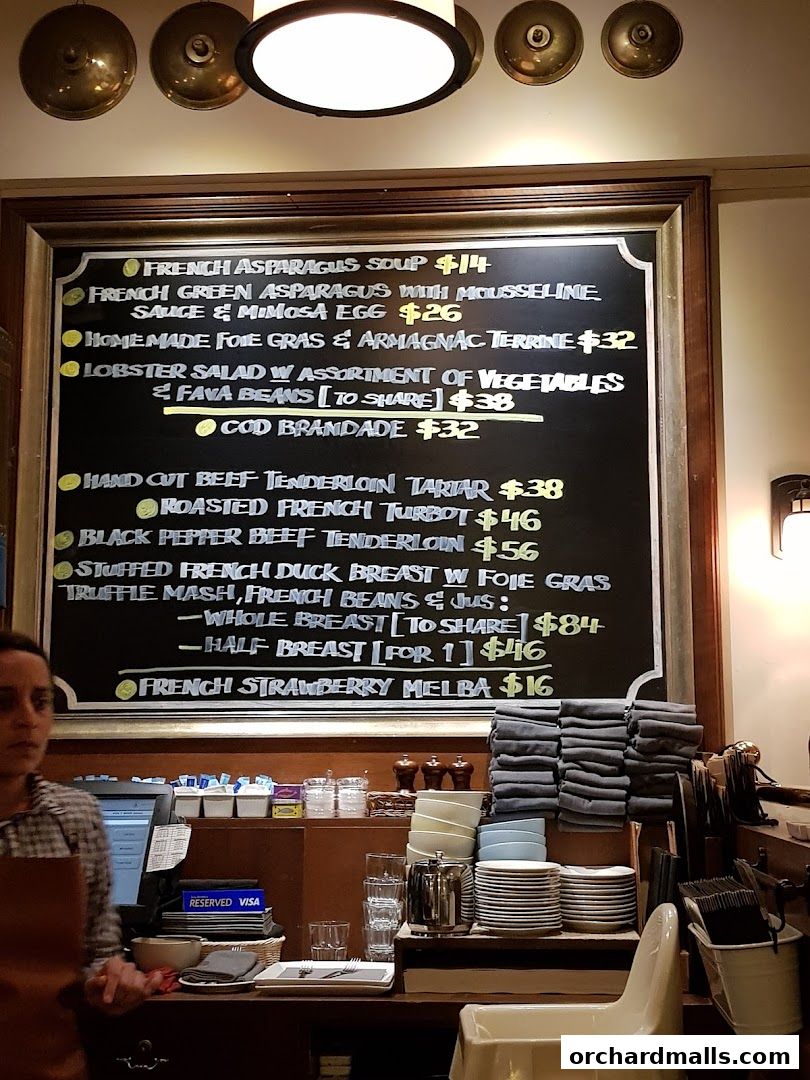 FRENCH ASPARAGUS SOUP $14
FRENCH GREEN ASPARAGUS WITH MOUSSELINE
SAUCE & MIMOSA EGG $26
HOMEMADE FOIE GRAS & ARMAGNAC TERRINE $32
LOBSTER SALAD W ASSORTMENT OF VEGETABLES
& FAVA BEANS [TO SHARE] $38
COD BRANDADE $32
HAND CUT BEEF TENDERLOIN TARTAR $38
ROASTED FRENCH TURBOT $46
BLACK PEPPER BEEF TENDERLOIN $56
STUFFED FRENCH DUCK BREAST W FOIE GRAS
TRUFFLE MASH, FRENCH BEANS & JUS:
- WHOLE BREAST [TO SHARE] $84
- HALF BREAST [FOR 1] $46
FRENCH STRAWBERRY MELBA $16
RESERVED VISA
orchardmalls.com